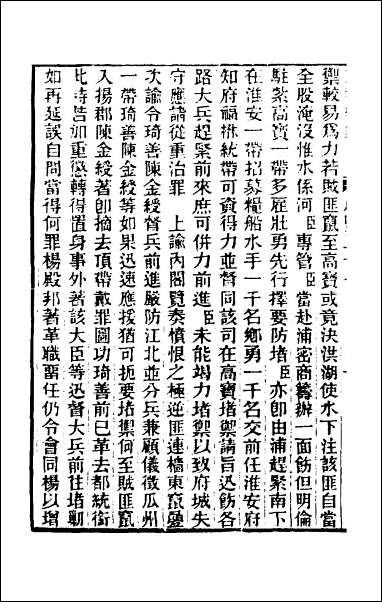 禦較易為力若賊匪竄至高寶或竟決洪湖使水下注該匪自當
全股淹沒惟水係河臣專管臣當赴浦密商籌辦一面飭但明倫
駐紮高寶一帶多雇壯勇先行擇要防堵臣亦卽由浦趕緊南下
在淮安一帶招募糧船水手一千名鄉勇一千名交前任淮安府
知府福楙統帶可資得力並督同該司在高寶堵禦請旨迅飭各
路大兵趕緊前來庶可併力前進臣未能竭力堵禦以致府城失
守應請從重治罪　上諭內閣覽奏憤恨之極逆匪連檣東竄疊
次諭令琦善陳金綬督兵前進嚴防江北並分兵兼顧儀徵瓜州
一帶琦善陳金綬等如果迅速應援猶可扼要堵禦何至賊匪竄
入揚郡陳金綬著卽摘去頂帶戴罪圖功琦善前已革去都統銜
此時若加重懲轉得置身事外著該大臣等迅督大兵前往堵勦
如再延誤自問當得何罪楊殿邦著革職畱任仍令會同楊以增